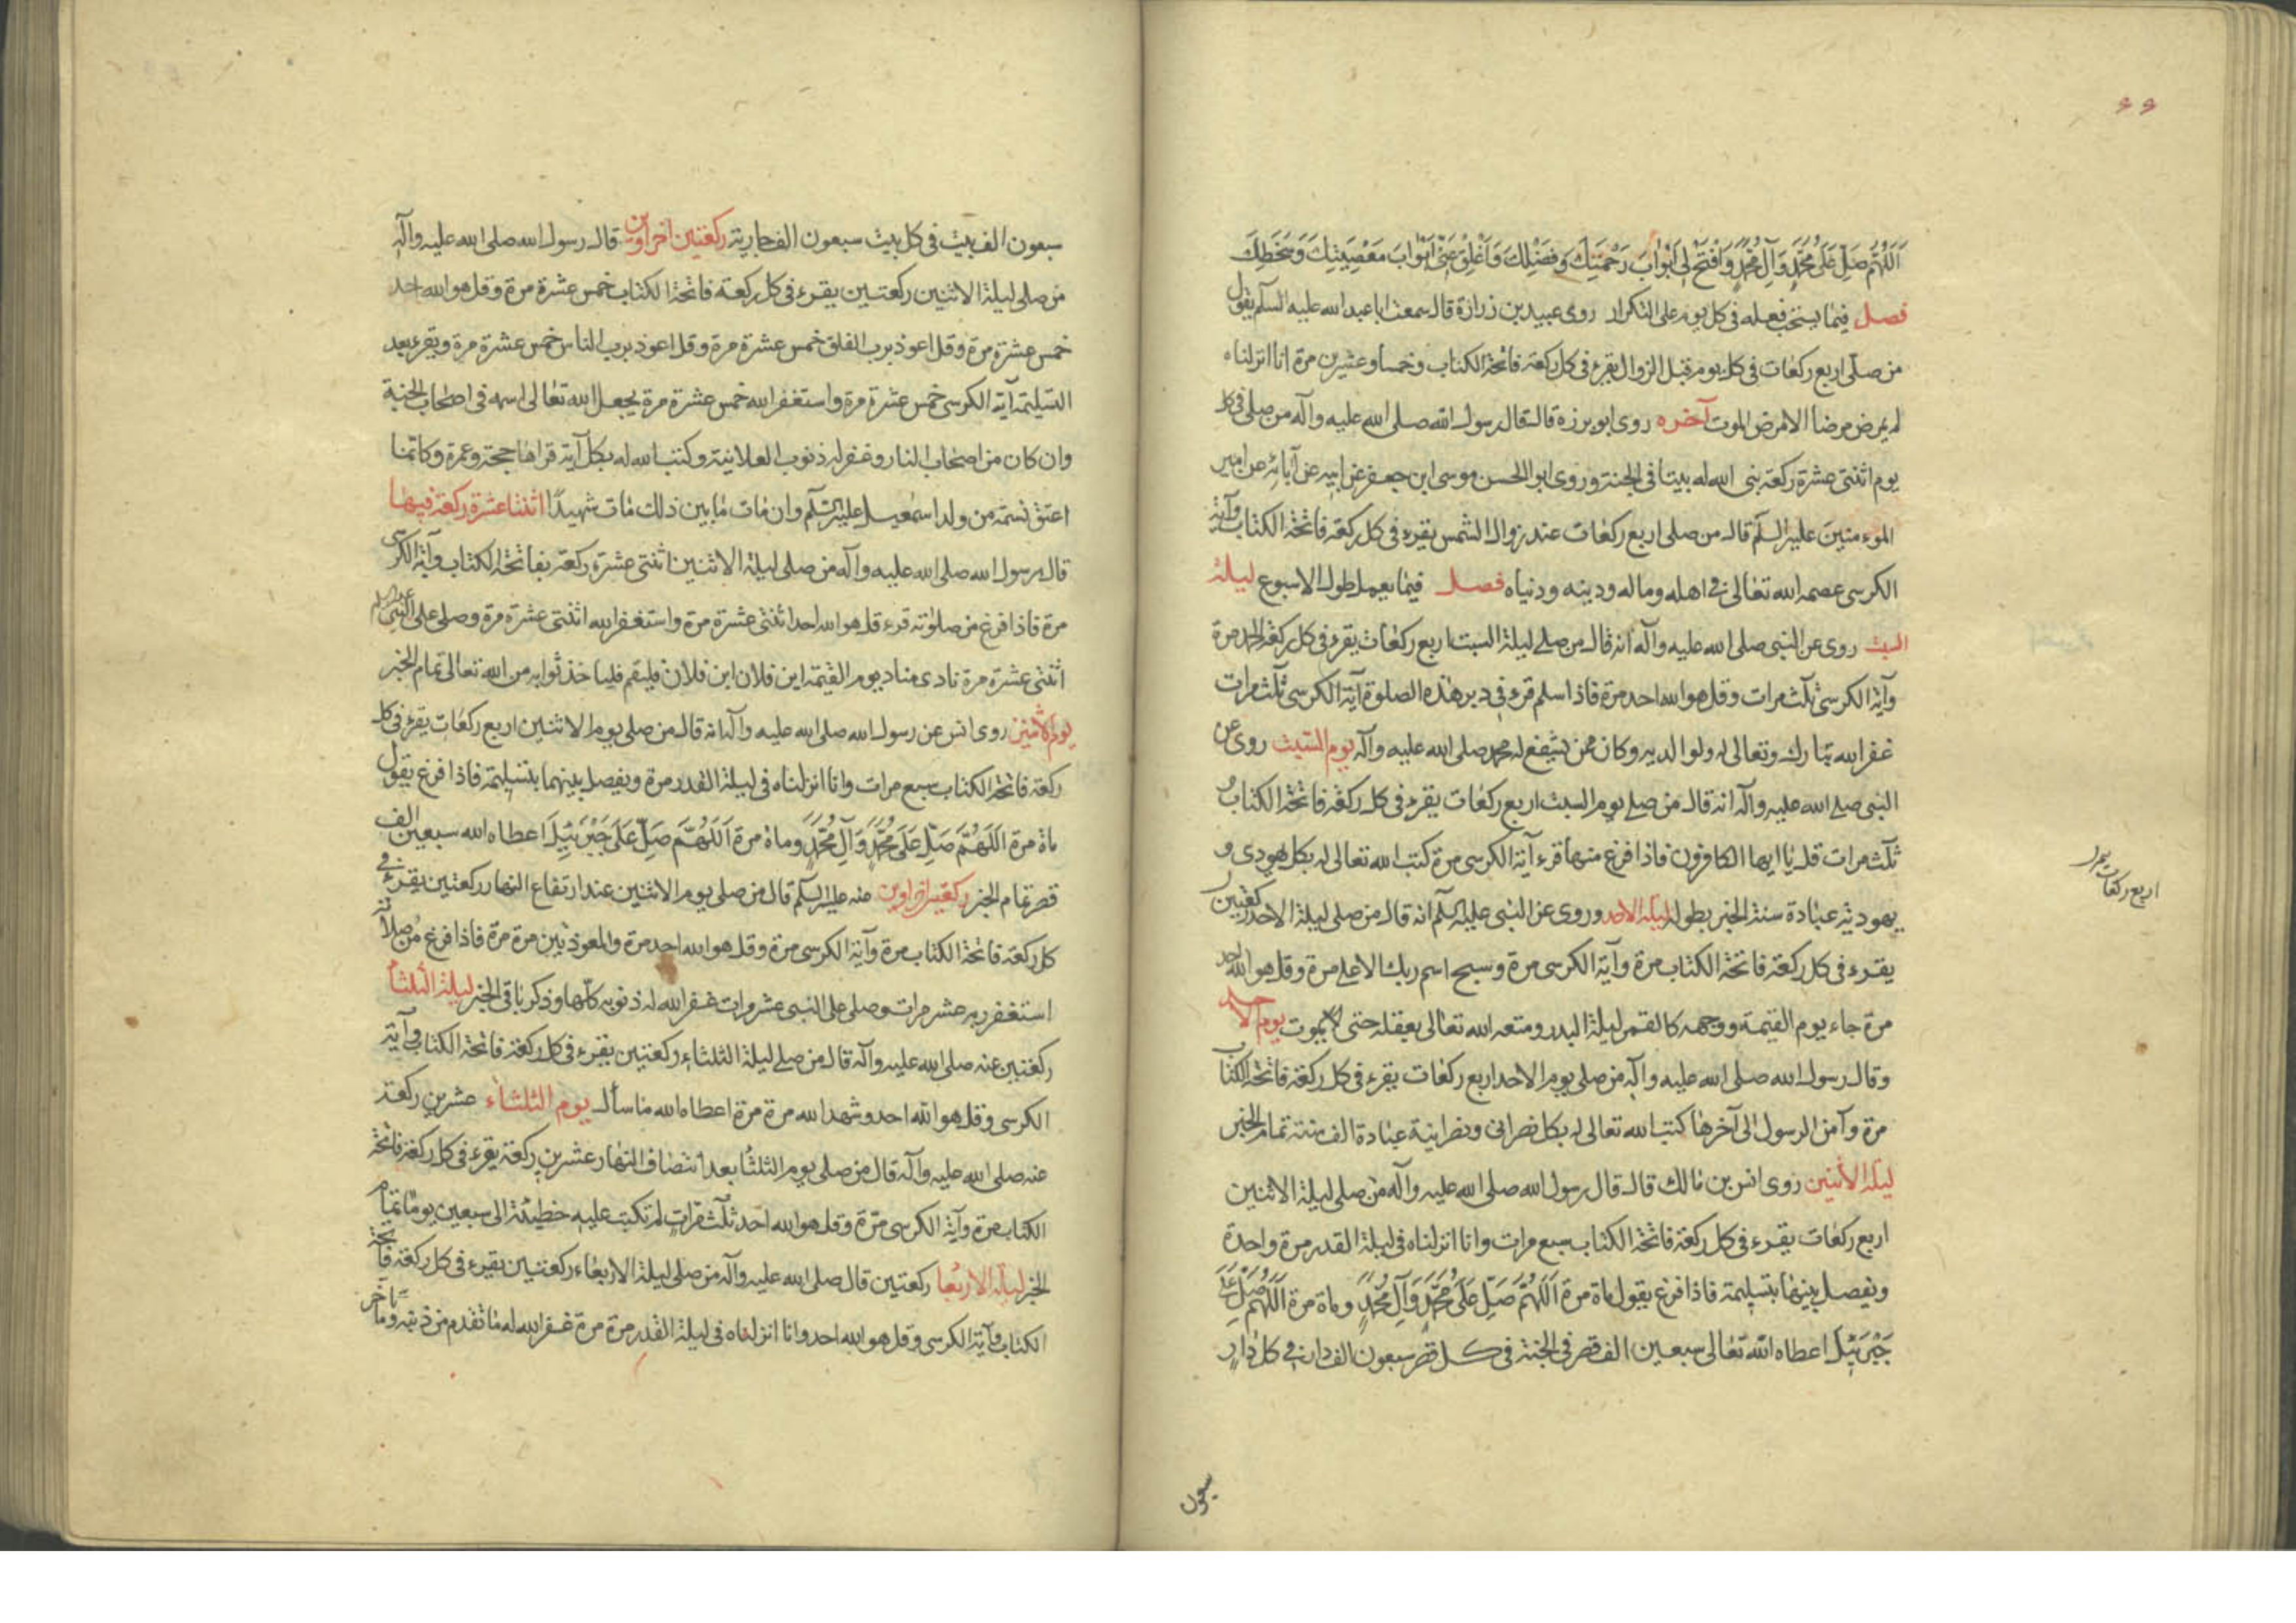 ٩٩
اَللّٰهُمَّ صَلِّ عَلٰى مُحَمَّدٍ وَآلِ مُحَمَّدٍ وَافْتَحْ لِى اَبْوٰابَ رَحْمَتِكَ وَفَضْلِكَ وَاَغْلِقْ عَنّى اَبْوٰابَ مَعْصِيَتِكَ وَسَخَطِكَ
فصل فيما يستحب فعله فى كل يوم على التكرار روى عبيد بن زرارة قال سمعت ابا عبد الله عليه السلم يقول
من صلى اربع ركعات فى كل يوم قبل الزوال يقرء فى كل ركعة فاتحة الكتاب وخمسا وعشرين مرة انا انزلناه
لم يمرض مرضا الا مرض الموت آخره روى ابو برزة قال قال رسول الله صلى الله عليه وآله من صلى فى كل
يوم اثنتى عشرة ركعة بنى الله له بيتا فى الجنة وروى ابو الحسن موسى ابن جعفر عن ابيه عن آبائه عن امير
المؤمنين عليه السلم قال من صلى اربع ركعات عند زوال الشمس يقرء فى كل ركعة فاتحة الكتاب وآية
الكرسى عصمه الله تعالى فى اهله وماله ودينه ودنياه فصل فيما يعمل طول الاسبوع ليلة
السبت روى عن النبى صلى الله عليه وآله انه قال من صلى ليلة السبت اربع ركعات يقرء فى كل ركعة الحمد مرة
وآية الكرسى ثلث مرات وقل هو الله احد مرة فاذا سلم قرء فى دبر هذه الصلوة آية الكرسى ثلث مرات
غفر الله تبارك وتعالى له ولوالديه وكان ممن يشفع له محمد صلى الله عليه وآله يوم السبت روى عن
النبى صلى الله عليه وآله انه قال من صلى يوم السبت اربع ركعات يقرء فى كل ركعة فاتحة الكتاب و
ثلث مرات قل يا ايها الكافرون فاذا فرغ منها قرء آية الكرسى مرة كتب الله تعالى له بكل يهودى و
يهودية عبادة سنة الخبر بطوله ليلة الاحد وروى عن النبى عليه السلم انه قال من صلى ليلة الاحد ركعتين
يقرء فى كل ركعة فاتحة الكتاب مرة وآية الكرسى مرة وسبح اسم ربك الاعلى مرة وقل هو الله احد
مرة جاء يوم القيمة ووجهه كالقمر ليلة البدر ومتعه الله تعالى بعقله حتى يموت يوم الاحد
وقال رسول الله صلى الله عليه وآله من صلى يوم الاحد اربع ركعات يقرء فى كل ركعة فاتحة الكتاب
مرة وآمن الرسول الى آخرها كتب الله تعالى له بكل نصرانى ونصرانية عبادة الف سنة تمام الخبر
ليلة الاثنين روى انس بن مالك قال قال رسول الله صلى الله عليه وآله من صلى ليلة الاثنين
اربع ركعات يقرء فى كل ركعة فاتحة الكتاب سبع مرات وانا انزلناه فى ليلة القدر مرة واحدة
ويفصل بينهما بتسليمة فاذا فرغ يقول ماة مرة اَللّٰهُمَّ صَلِّ عَلٰى مُحَمَّدٍ وَآلِ مُحَمَّدٍ وماة مرة اَللّٰهُمَّ صَلِّ عَلٰى
جَبْرَئيلَ اعطاه الله تعالى سبعين الف قصر فى الجنة فى كل قصر سبعون الف دار فى كل دار
اربع ركعات
سبعون
سبعون الف بيت فى كل بيت سبعون الف جارية ركعتين اخراوين قال رسول الله صلى الله عليه وآله
من صلى ليلة الاثنين ركعتين يقرء فى كل ركعة فاتحة الكتاب خمس عشرة مرة وقل هو الله احد
خمس عشرة مرة وقل اعوذ برب الفلق خمس عشرة مرة وقل اعوذ برب الناس خمس عشرة مرة ويقرء بعد
التسليمة آية الكرسى خمس عشرة مرة واستغفر الله خمس عشرة مرة يجعل الله تعالى اسمه فى اصحاب الجنة
وان كان من اصحاب النار وغفر له ذنوب العلانية وكتب الله له بكل آية قراها حجة وعمرة وكانما
اعتق نسمة من ولد اسمعيل عليه السلم وان مات ما بين ذلك مات شهيدا اثنتا عشرة ركعة فيها
قال رسول الله صلى الله عليه وآله من صلى ليلة الاثنين اثنتى عشرة ركعة بفاتحة الكتاب وآية الكرسى
مرة فاذا فرغ من صلوته قرء قل هو الله احد اثنتى عشرة مرة واستغفر الله اثنتى عشرة مرة وصلى على النبى
اثنتى عشرة مرة نادى مناد يوم القيمة اين فلان ابن فلان فليقم فلياخذ ثوابه من الله تعالى تمام الخبر
يوم الاثنين روى انس عن رسول الله صلى الله عليه وآله انه قال من صلى يوم الاثنين اربع ركعات يقرء فى كل
ركعة فاتحة الكتاب سبع مرات وانا انزلناه فى ليلة القدر مرة ويفصل بينهما بتسليمة فاذا فرغ يقول
ماة مرة اَللّٰهُمَّ صَلِّ عَلٰى مُحَمَّدٍ وَآلِ مُحَمَّدٍ وماة مرة اَللّٰهُمَّ صَلِّ عَلٰى جَبْرَئيلَ اعطاه الله سبعين الف
قصر تمام الخبر ركعتين اخراوين عنه عليه السلم قال من صلى يوم الاثنين عند ارتفاع النهار ركعتين يقرء فى
كل ركعة فاتحة الكتاب مرة وآية الكرسى مرة وقل هو الله احد مرة والمعوذتين مرة مرة فاذا فرغ من صلاته
استغفر ربه عشر مرات وصلى على النبى عشر مرات غفر الله له ذنوبه كلها وذكر باقى الخبر ليلة الثلثاء
ركعتين عنه صلى الله عليه وآله قال من صلى ليلة الثلثاء ركعتين يقرء فى كل ركعة فاتحة الكتاب وآية
الكرسى وقل هو الله احد وشهد الله مرة مرة اعطاه الله ما سأل يوم الثلثاء عشرين ركعة
عنه صلى الله عليه وآله قال من صلى يوم الثلثا بعد انتصاف النهار عشرين ركعة يقرء فى كل ركعة فاتحة
الكتاب مرة وآية الكرسى مرة وقل هو الله احد ثلث مرات لم تكتب عليه خطيئة الى سبعين يوما تمام
الخبر ليلة الاربعا ركعتين قال صلى الله عليه وآله من صلى ليلة الاربعاء ركعتين يقرء فى كل ركعة فاتحة
الكتاب وآية الكرسى وقل هو الله احد وانا انزلناه فى ليلة القدر مرة مرة غفر الله له ما تقدم من ذنبه وما تأخر